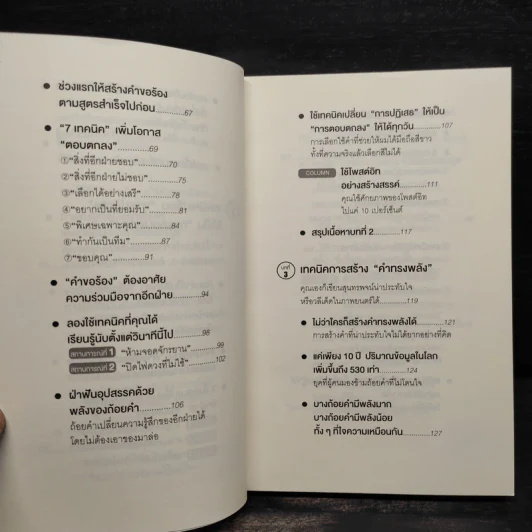 ● ช่วงแรกให้สร้างคำขอร้อง
ตามสูตรสำเร็จไปก่อน............67
● “7 เทคนิค” เพิ่มโอกาส
“ตอบตกลง”................69
①“สิ่งที่อีกฝ่ายชอบ”...........70
②“สิ่งที่อีกฝ่ายไม่ชอบ”...........75
③“เลือกได้อย่างเสรี”...........78
④“อยากเป็นที่ยอมรับ”...........81
⑤“พิเศษเฉพาะคุณ”...........84
⑥“ทำกันเป็นทีม”...........87
⑦“ขอบคุณ”...........91
● “คำขอร้อง” ต้องอาศัย
ความร่วมมือจากอีกฝ่าย...........94
● ลองใช้เทคนิคที่คุณได้
เรียนรู้นับตั้งแต่วินาทีนี้ไป...........98
สถานการณ์ที่ 1 “ห้ามจอดจักรยาน”...........99
สถานการณ์ที่ 2 “ปิดไฟดวงที่ไม่ใช้”...........102
● ฝ่าฟันอุปสรรคด้วย
พลังของถ้อยคำ...........106
ถ้อยคำเปลี่ยนความรู้สึกของอีกฝ่ายได้
โดยไม่ต้องเอาของมาล่อ
● ใช้เทคนิคเปลี่ยน “การปฏิเสธ” ให้เป็น
“การตอบตกลง” ให้ได้ทุกวัน...........107
การเลือกใช้คำที่ช่วยให้ผมได้มือถือสีขาว
ทั้งที่ความจริงแล้วเลือกสีไม่ได้
COLUMN ใช้โพสต์อิท
อย่างสร้างสรรค์...........111
คุณใช้ศักยภาพของโพสต์อิท
ไปแค่ 10 เปอร์เซ็นต์
● สรุปเนื้อหาบทที่ 2...........117
บทที่ 3 เทคนิคการสร้าง “คำทรงพลัง”
คุณเองก็เขียนสุนทรพจน์น่าประทับใจ
หรือวลีเด็ดในภาพยนตร์ได้...........119
● ไม่ว่าใครก็สร้างคำทรงพลังได้...........121
การสร้างคำที่น่าประทับใจไม่ได้ยากอย่างที่คิด
● แค่เพียง 10 ปี ปริมาณข้อมูลในโลก
เพิ่มขึ้นถึง 530 เท่า...........124
ยุคที่ผู้คนมองข้ามถ้อยคำที่ไม่โดนใจ
● บางถ้อยคำมีพลังมาก
บางถ้อยคำมีพลังน้อย
ทั้ง ๆ ที่ใจความเหมือนกัน...........127